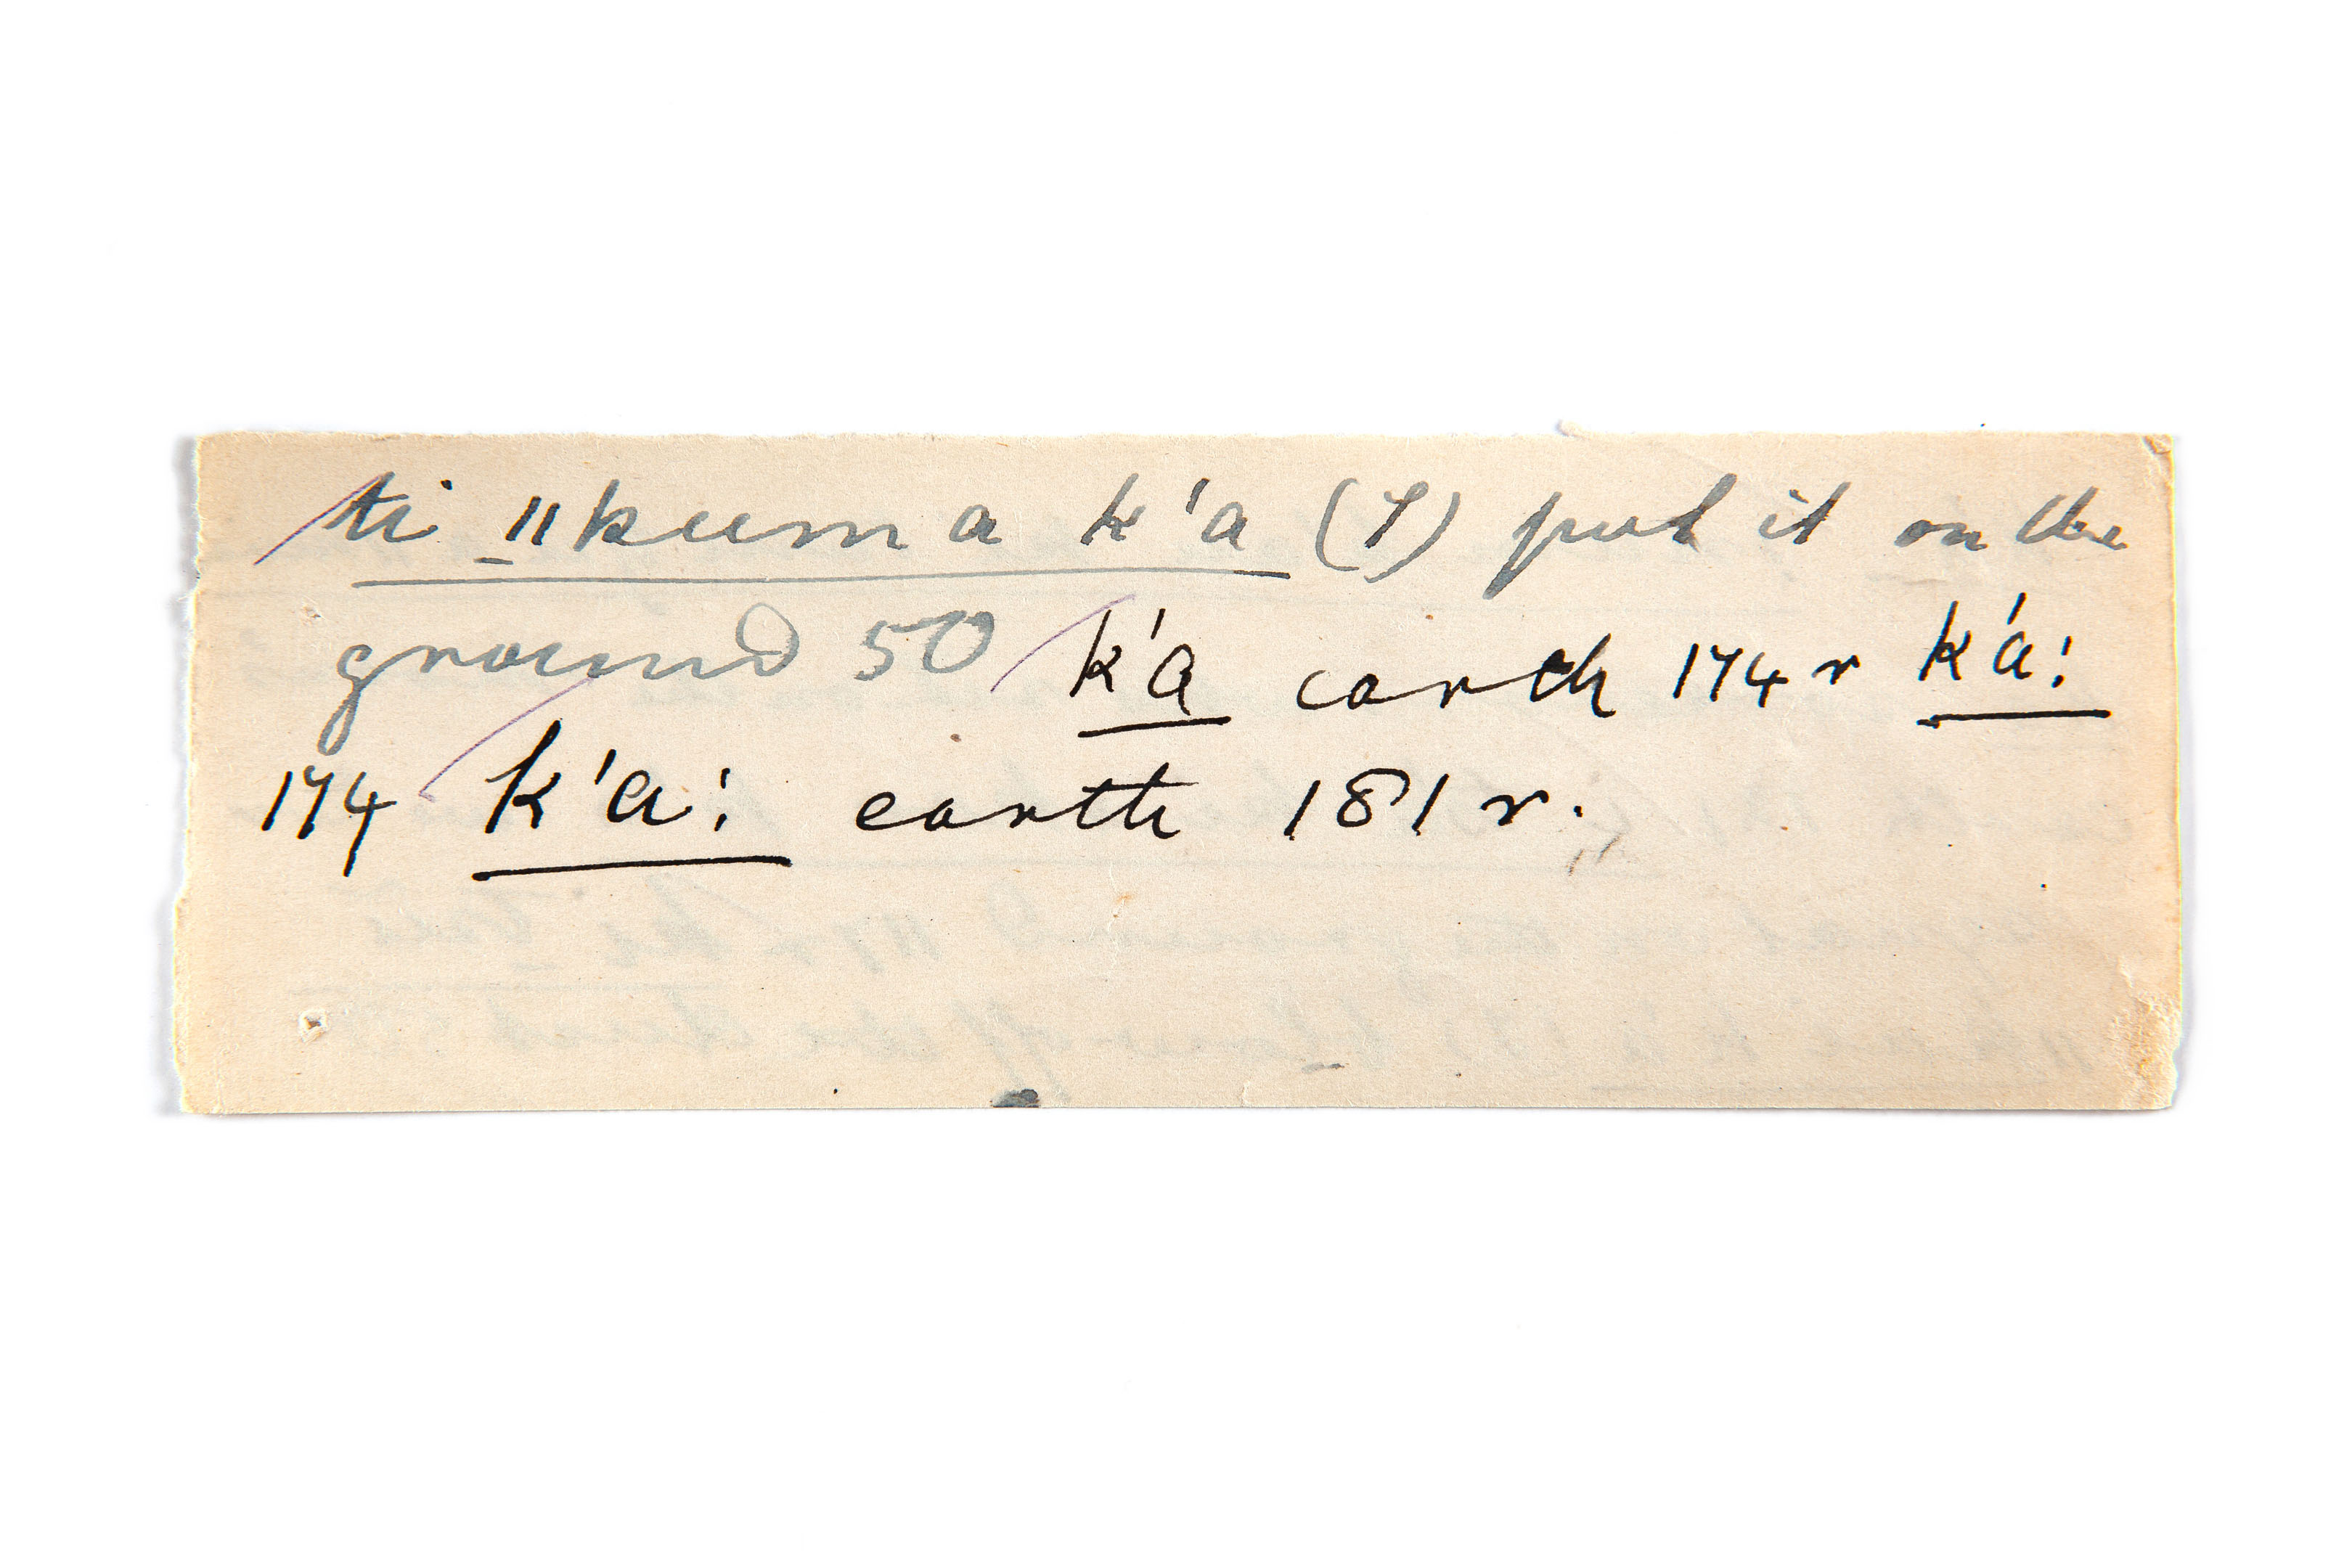 ti ǁkuma k'a (T) put it on the
ground 50 k'a earth 174 r k'a:
174 k'a: earth 181 r.